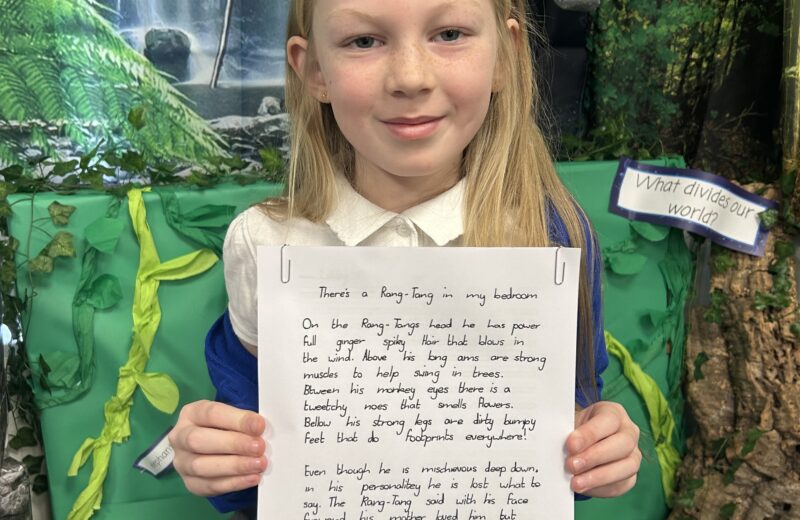 What divides our
world?
There's a Rang-Tang in my bedroom
On the Rang-Tangs head he has power
full ginger spiky Hair that blows in
the wind. Above his long arms are strong
muscles to help swing in trees.
Btween his monkey eyes there is a
tweetchy noes that smells flowers.
Bellow his strong legs are dirty bumpy
feet that do footprints everywhere!
Even though he is mischievous deep down,
in his personalitey he is lost what to
say. The Rang-Tang said with his face
his mother loved him but